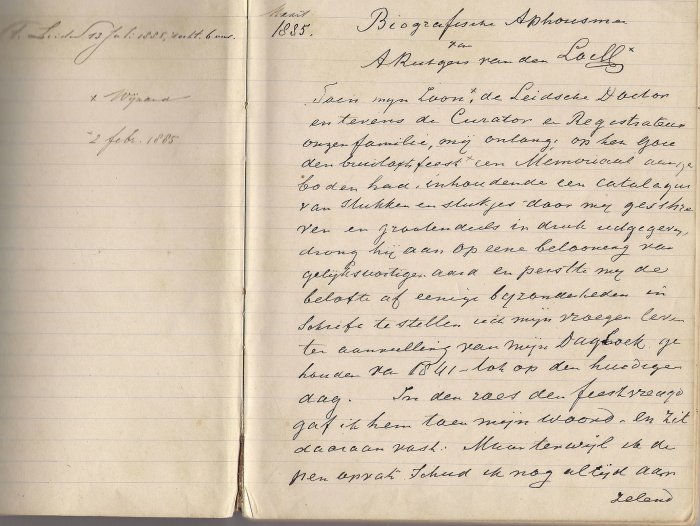 † Leiden 13 Juli 1888,
x Wijnand
2 febr. 1885
Maart
1885.
Biografische Aphorismen
van
A Rutgers van der Loeff
Toen mijn Zoon x, de Leidsche Doctor
en tevens de Curator en Registrateur
onzer familie, mij onlangs op het Gou
den bruiloftsfeest x een Memoriaal aange
boden had, inhoudende een catalogus
van stukken en stukjes door mij geschre
ven en grootendeels in druk uitgegeven,
drong hij aan op eene belooning van
gelijksoortigen aard en perste mij de
belofte af eenige bijzonderheden in
Schrift te stellen uit mijn vroeger leven
ter aanvulling van mijn Dagboek ge
houden van 1841 tot op den huidigen
dag. In den roes der feestvreugd
gaf ik hem toen mijn woord. En zit
daaraan vast. Maar terwijl ik de
pen opvat, Schud ik nog altijd aar
zelend